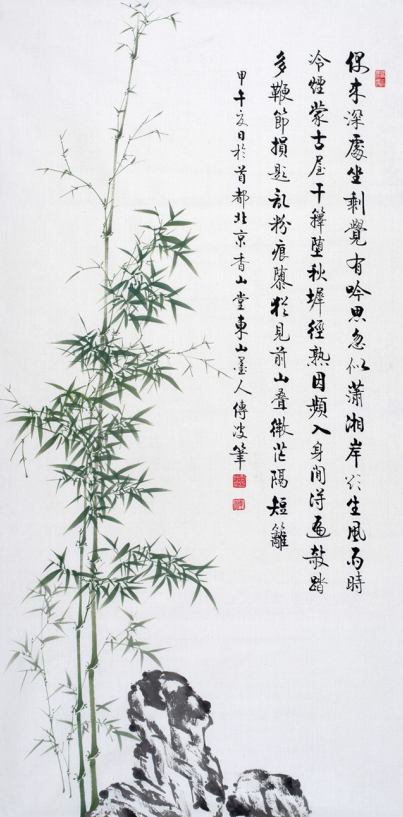 偶来深處坐剩覺有吟思忽似瀟湘岸欲生風雨時
冷煙蒙古屋干籜堕秋墀徑熟因頻入身閒得遍敲踏
多鞭節損題乱粉痕隳猶見前山叠微茫隔短籬
甲午夏日於首都北京香山堂東山墨人傳波筆